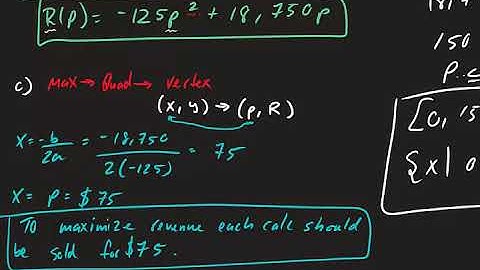 R(p) = -125p² + 18,750p
18,
150
p.
c) max → Quad → vertex
(x, y) → (p, R)
[0, 15
x = -b/2a = -18,750/2(-125) = 75
{x| 0
x = p = $75
To maximize revenue each calc should
be sold for $75.